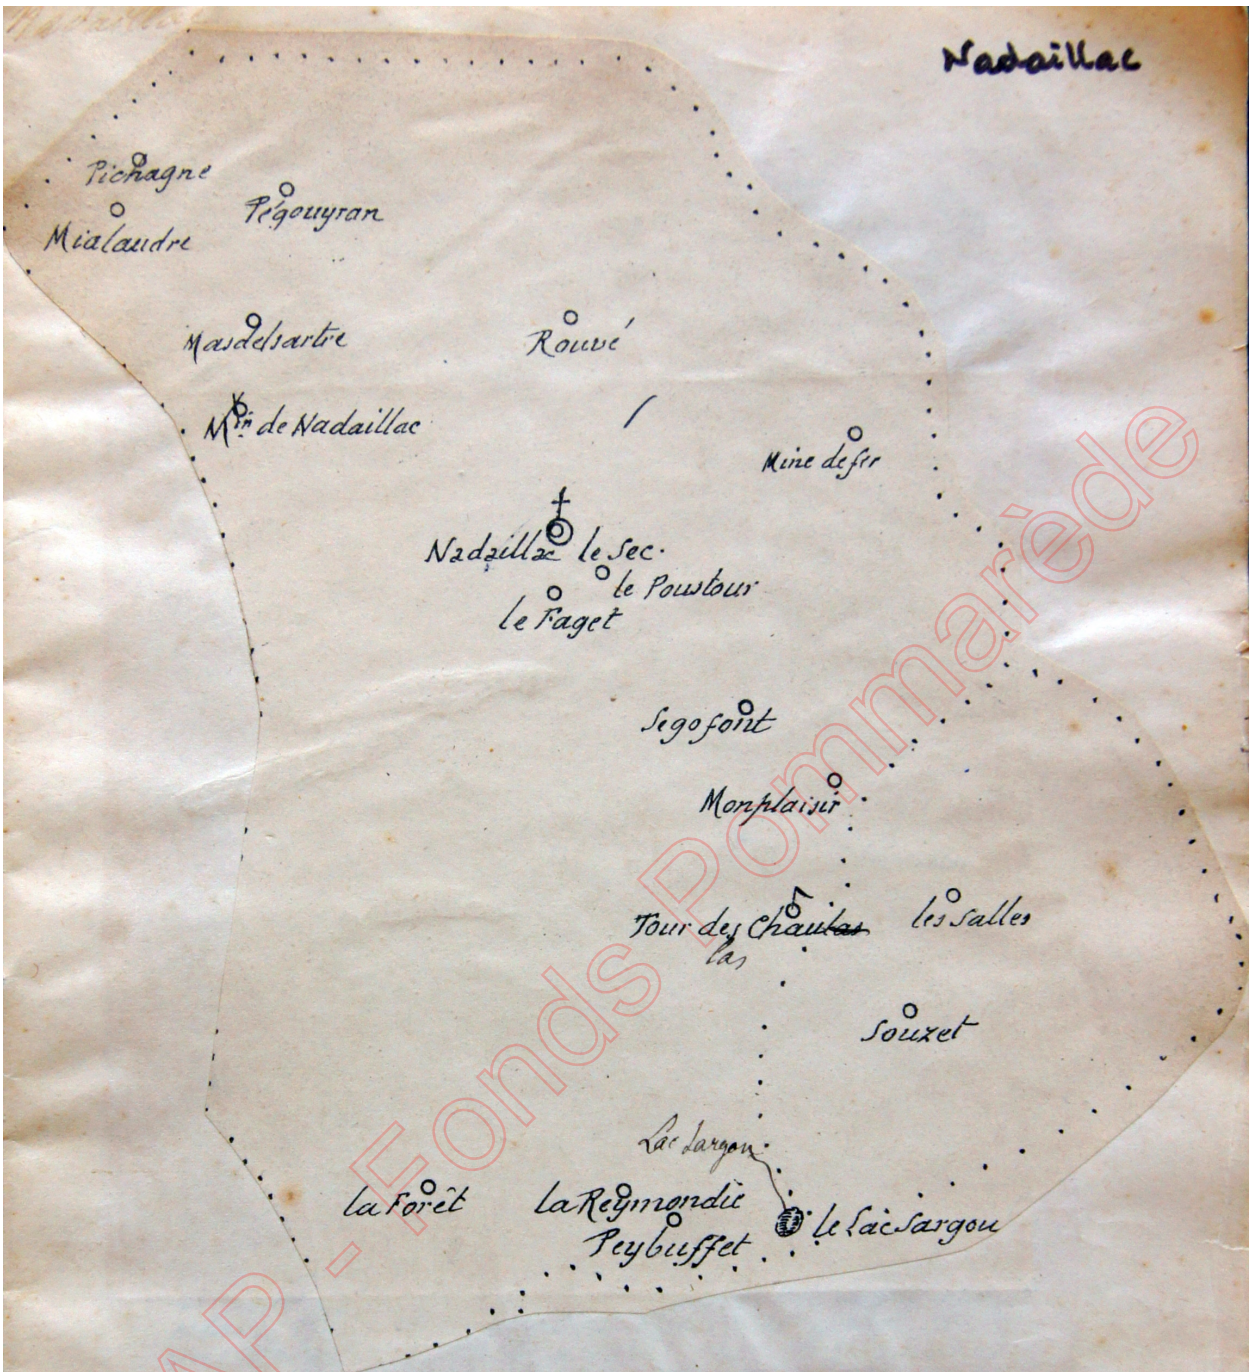 Nadaillac
Nadaillac
Pichagne
Pégouyran
Mialaudre
Masdelsartre
Rouvé
Min de Nadaillac
Mine de fer
Nadaillac le Sec.
le Poustour
le Faget
Segofont
Monplaisir
Tour des Chaulas
las
les Salles
Souzet
Lac Sargou
la Forêt
la Reymondie
le Lac Sargou
Peybuffet
AP - Fonds Pommarède